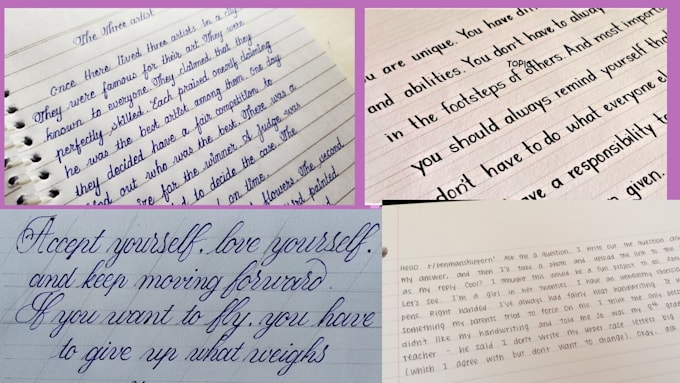 The Three artist
Once there lived three artists in a city
They were famous for their art. They were
known to everyone. They claimed that they
perfectly skilled. Each praised claiming
he was the best artist among them. One day
they decided have a fair competition to
out who was the best. There was a
for the winner. A judge was
to decide the case. The
on time.
flowers. The second
painted
u are unique. You have di
and abilities. You don't have to alway
TOPIC
in the footsteps of others. And most importa
you should always remind yourself that
don't have to do what everyone el
ve a responsibility to
given.
Accept yourself, love yourself,
and keep moving forward.
If you want to fly, you have
to give up what weighs
Hello r/penmanshipporn! Ask me a question, I write out the question and
my answer, and then I'll take a photo and upload the link to the
as my reply. Cool? I thought this would be a fun project to do.
Let's see. I'm a girl in her twenties. I have an unhealthy
pens. Right handed. I've always had fairly neat handwriting. It
something my parents tried to force on me. I think the only
didn't like my handwriting and told me so was my 5th grade
teacher - he said I don't write my upper case letters big
(which I agree with but don't want to change). Okay... ask